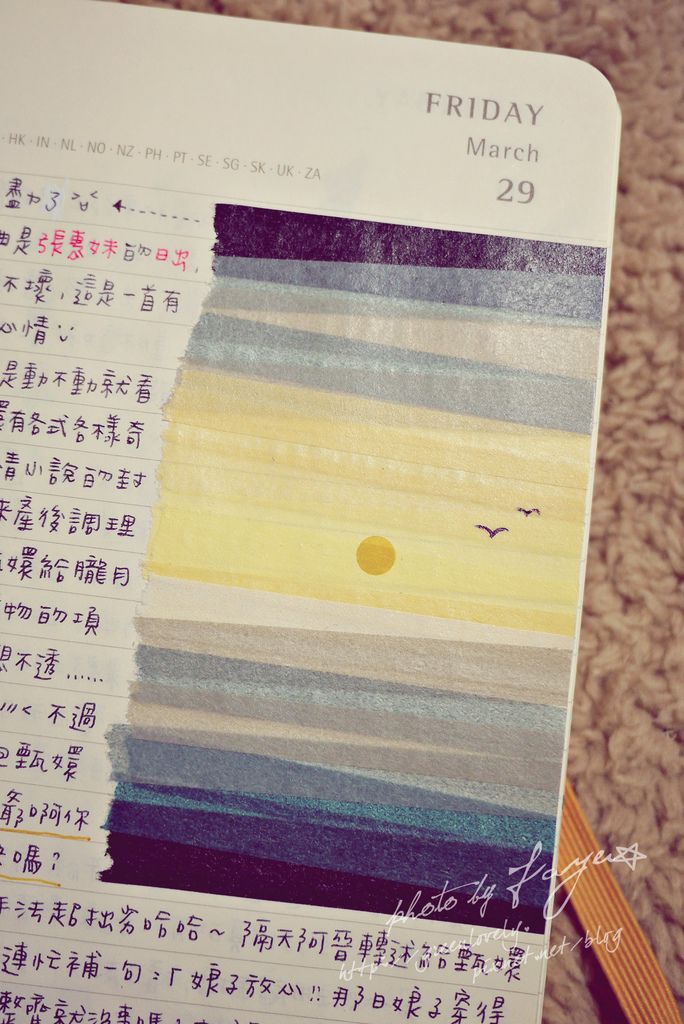 FRIDAY
March
29
HK · IN · NL · NO · NZ · PH · PT · SE · SG · SK · UK · ZA
盡力了
曲是張惠妹的日出,
不壞,這是一首有
心情
是動不動就看
還有各式各樣奇
情小說的封
來產後調理
嬛給朧月
物的項
想不透……
不過
甄嬛
耶啊你
嗎?
手法超拙劣哈哈~ 隔天阿晉轉述給甄嬛
連忙補一句:「娘子放心!! 那日娘子穿得
整齊就沒事嗎?
photo by Faye☆
http://greenlovely.
pixnet.net/blog